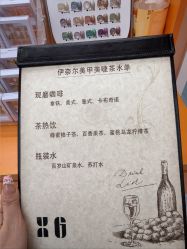 伊奈尔美甲美睫茶水单
现磨咖啡
拿铁、美式、馥式、卡布奇诺
茶热饮
蜂蜜柚子茶、百香果茶、蜜桃乌龙柠檬茶
瓶装水
百岁山矿泉水、苏打水
Drink
List
X6